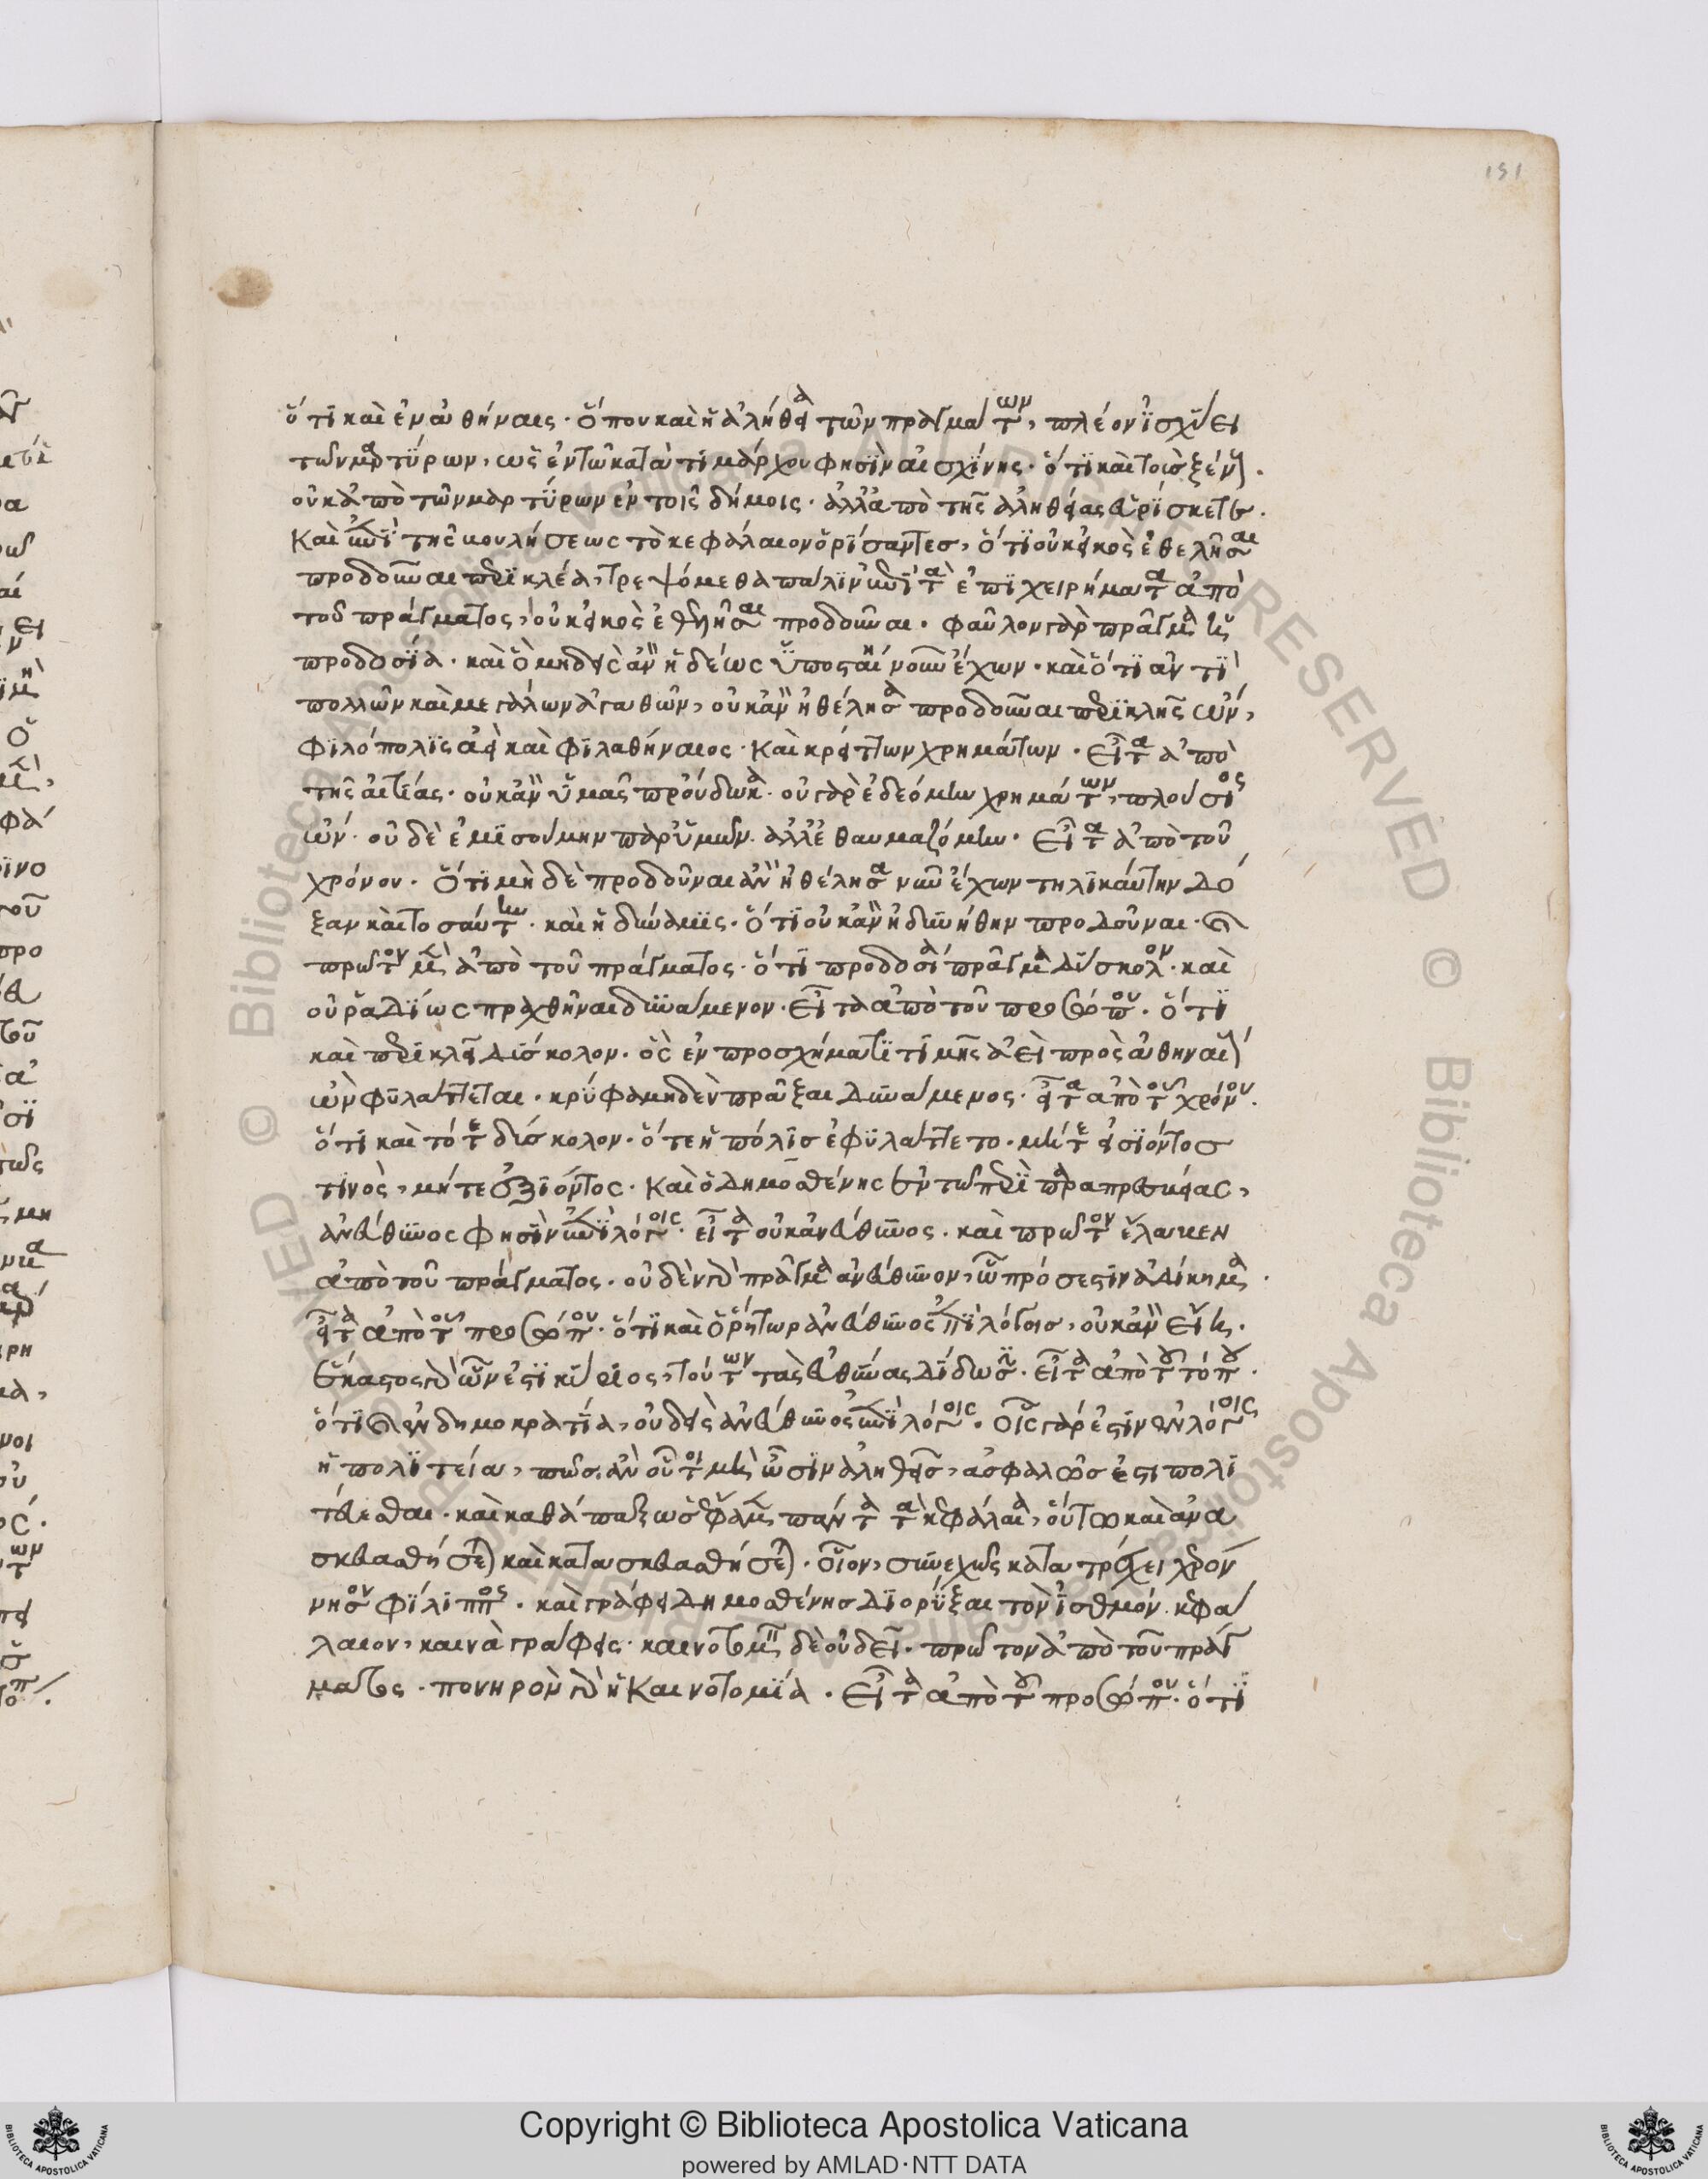 191
ὅτι καὶ ἐν ἀθήναις. ὅπου καὶ ἡ ἀλήθεια τῶν πραγμάτων, πλέον ἰσχύει
τῶν μαρτύρων, ὡς ἐν τῶ κατὰ τιμάρχου φησὶν αἰσχίνης. ὅτι καὶ τοὺς ξένους.
οὐκ ἀπὸ τῶν μαρτύρων ἐν τοῖς δήμοις. ἀλλ' ἀπὸ τῆς ἀληθείας εὑρίσκετε.
Καὶ ἐπὶ τῆς βουλήσεως τὸ κεφάλαιον ὁρίσαντες, ὅτι οὐκ εἰκὸς ἐθελῆσαι
προδοῦναι περικλέα, τρεψόμεθα πάλιν ἐπὶ τὰ ἐπιχειρήματα ἀπὸ
τοῦ πράγματος, οὐκ εἰκὸς ἐθελῆσαι προδοῦναι. φαῦλον γὰρ πρᾶγμα ἡ
προδοσία. καὶ ὃ μηδεὶς ἂν ἡδέως ὑποσταίη νοῦν ἔχων. καὶ ὅτι ἀντὶ
πολλῶν καὶ μεγάλων ἀγαθῶν, οὐκ ἂν ἠθέλησα προδοῦναι περικλῆς ὤν,
φιλόπολις ἀεὶ καὶ φιλαθήναιος. Καὶ κρείττων χρημάτων. Εἶτα ἀπὸ
τῆς αἰτίας. οὐκ ἂν ὑμᾶς προύδωκα. οὐ γὰρ ἐδεόμην χρημάτων, πλούσιος
ὤν. οὐδὲ ἐμισούμην παρ' ὑμῶν. ἀλλ' ἐθαυμαζόμην. Εἶτα ἀπὸ τοῦ
χρόνου. Ὅτι μηδὲ προδοῦναι ἂν ἠθέλησα νῦν ἔχων τηλικαύτην δό
ξαν καὶ τοσαύτην. καὶ ἡ δύναμις. ὅτι οὐκ ἂν ἠδυνήθην προδοῦναι.
πρῶτον μὲν ἀπὸ τοῦ πράγματος. ὅτι προδοσία πρᾶγμα δύσκολον. καὶ
οὐ ῥαδίως πραχθῆναι δυνάμενον. Εἶτα ἀπὸ τοῦ προσώπου. ὅτι
καὶ περικλεῖ δύσκολον. ὃς ἐν προσχήματι τιμῆς ἀεὶ πρὸς ἀθηναίων
ὢν φυλάττεται. κρύφα μηδὲν πρᾶξαι δυνάμενος. εἶτα ἀπὸ τοῦ χρόνου.
ὅτι καὶ τότε δύσκολον. ὅτε ἡ πόλις ἐφυλάττετο. μήτε εἰσιόντος
τινὸς, μήτε ἐξιόντος. Καὶ ὁ Δημοσθένης ἐν τῶ περὶ παραπρεσβείας,
ἀνεύθυνος φησὶν ἐπὶ λόγοις. εἶτα οὐκ ἀνεύθυνος. καὶ πρῶτον ἔλαβεν
ἀπὸ τοῦ πράγματος. οὐδὲν γὰρ πρᾶγμα ἀνεύθυνον, ὧ πρόσεστιν ἀδίκημα.
εἶτα ἀπὸ τοῦ προσώπου. ὅτι καὶ ὁ ῥήτωρ ἀνεύθυνος ἐπὶ λόγοις, οὐκ ἂν εἴη.
ἕκαστος γὰρ ὧν ἐστὶ κύριος, τούτων τὰς εὐθύνας δίδωσι. εἶτα ἀπὸ τοῦ τόπου.
ὅτι ἐν δημοκρατία, οὐδεὶς ἀνεύθυνος ἐπὶ λόγοις. οἷς γάρ ἐστιν ἐν λόγοις
ἡ πολιτεία, πῶς ἂν οὗτοι μὴ ὦσιν ἀληθεῖς, ἀσφαλῶς ἐστι πολι
τεύεσθαι. καὶ καθάπαξ ὡς ἔφαμεν πάντα τὰ κεφάλαια, οὕτω καὶ ἀνα
σκευασθήσεται καὶ κατασκευασθήσεται. οἷον, συνεχῶς κατατρέχει χερρόν
νησον φίλιππος. καὶ γράφει Δημοσθένης διορύξαι τὸν ἰσθμόν. κεφά
λαιον, καινὰ γράφεις. καινοτομεῖν δὲ οὐ δεῖ. πρῶτον ἀπὸ τοῦ πράγ
ματος. πονηρὸν γὰρ ἡ Καινοτομία. Εἶτα ἀπὸ τοῦ προσώπου. ὅτι
Copyright © Biblioteca Apostolica Vaticana
powered by AMLAD·NTT DATA